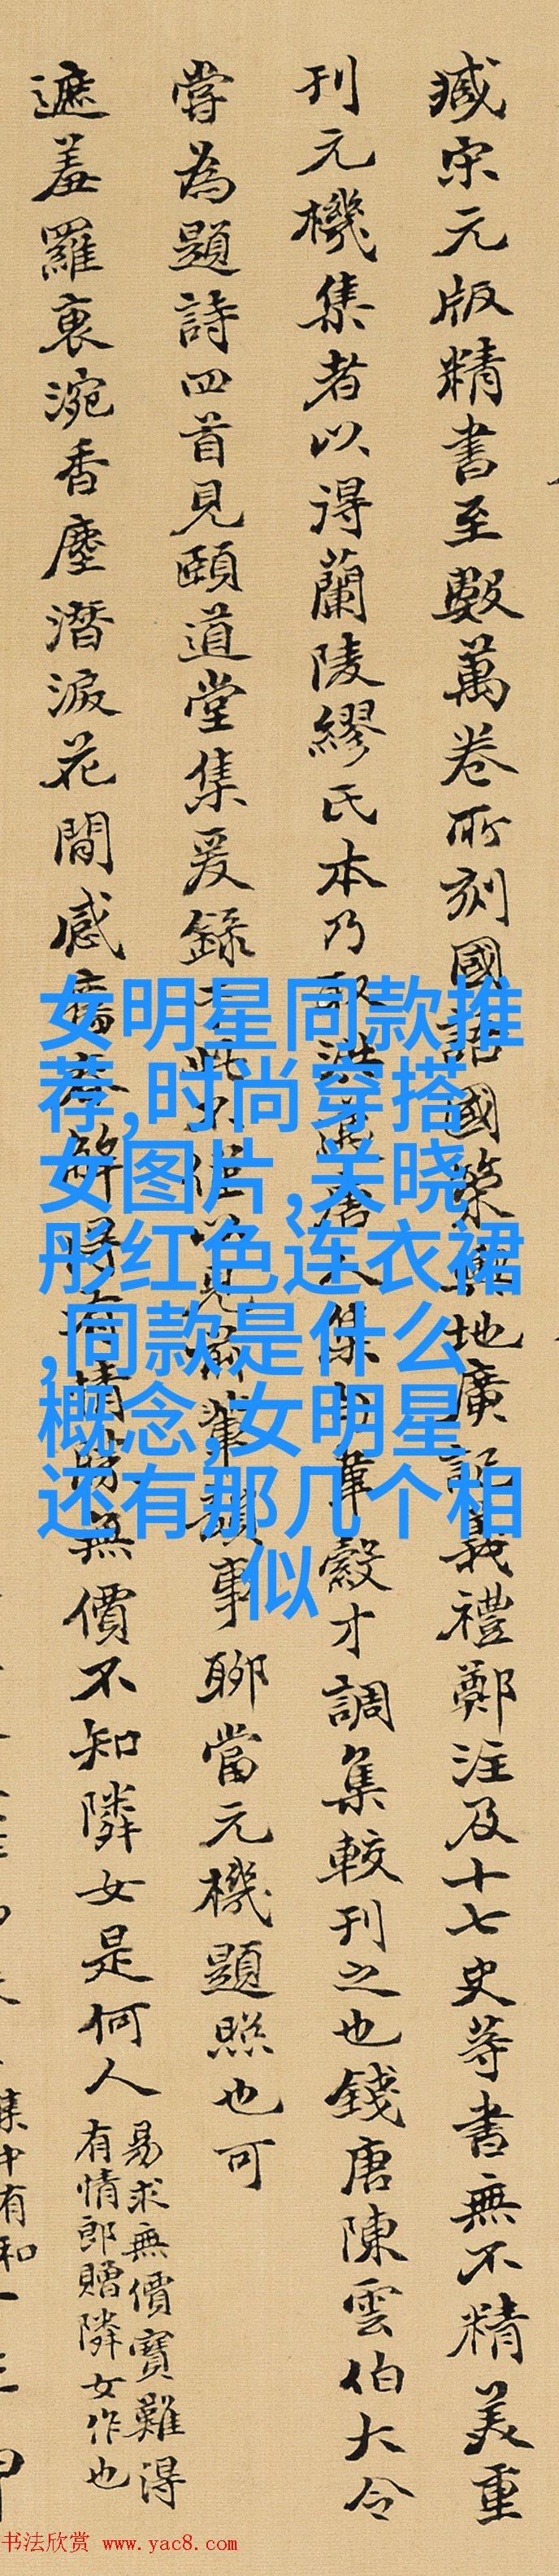 臧宋元版精書至數萬卷所刻國語國策輿地廣記義禮鄭注及十七史等書無不精美重
刊元機集者以得蘭陵繆氏本乃取洪唐人集韋縠才調集較刊之也錢唐陳雲伯大令
嘗為題詩四首見頤道堂集爰錄于此不但以見前輩韻事聊當元機題照也可
遮羞羅裏涴香塵潛淚花間感解將有情無價不知隣女是何人
易求無價寶難得
有情郎贈隣女作也
集中有和一
女明星同款推
荐,时尚穿搭
女图片,关晓
彤红色连衣裙
,同款是什么
概念,女明星
还有那几个相
似
书法欣赏 www.yac8.com